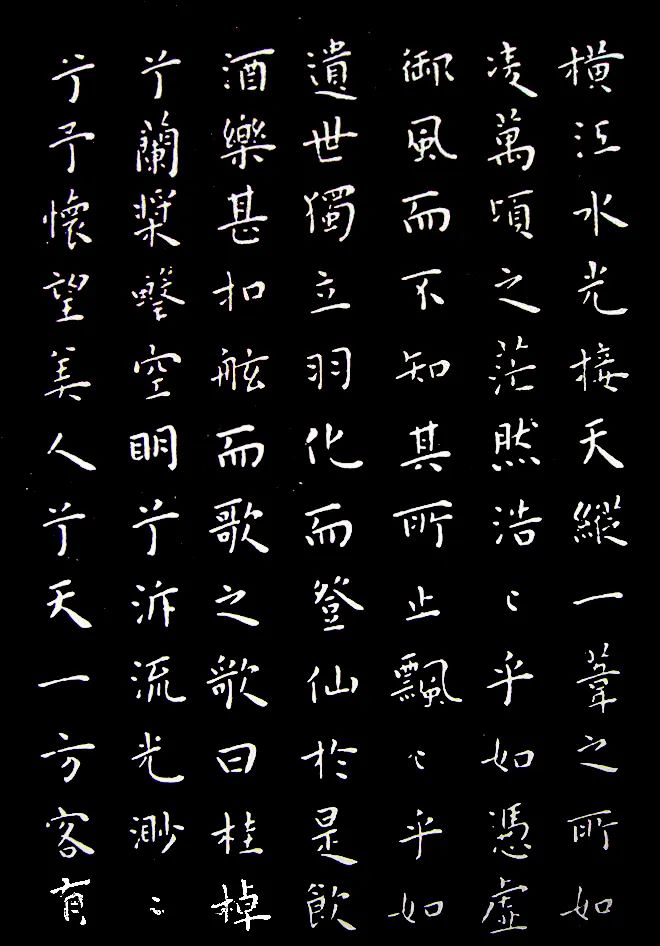 橫江水光接天縱一葦之所如
凌萬頃之茫然浩〻乎如憑虛
御風而不知其所止飄〻乎如
遺世獨立羽化而登仙於是飲
酒樂甚扣舷而歌之歌曰桂棹
兮蘭槳擊空明兮泝流光渺〻
兮予懷望美人兮天一方客有